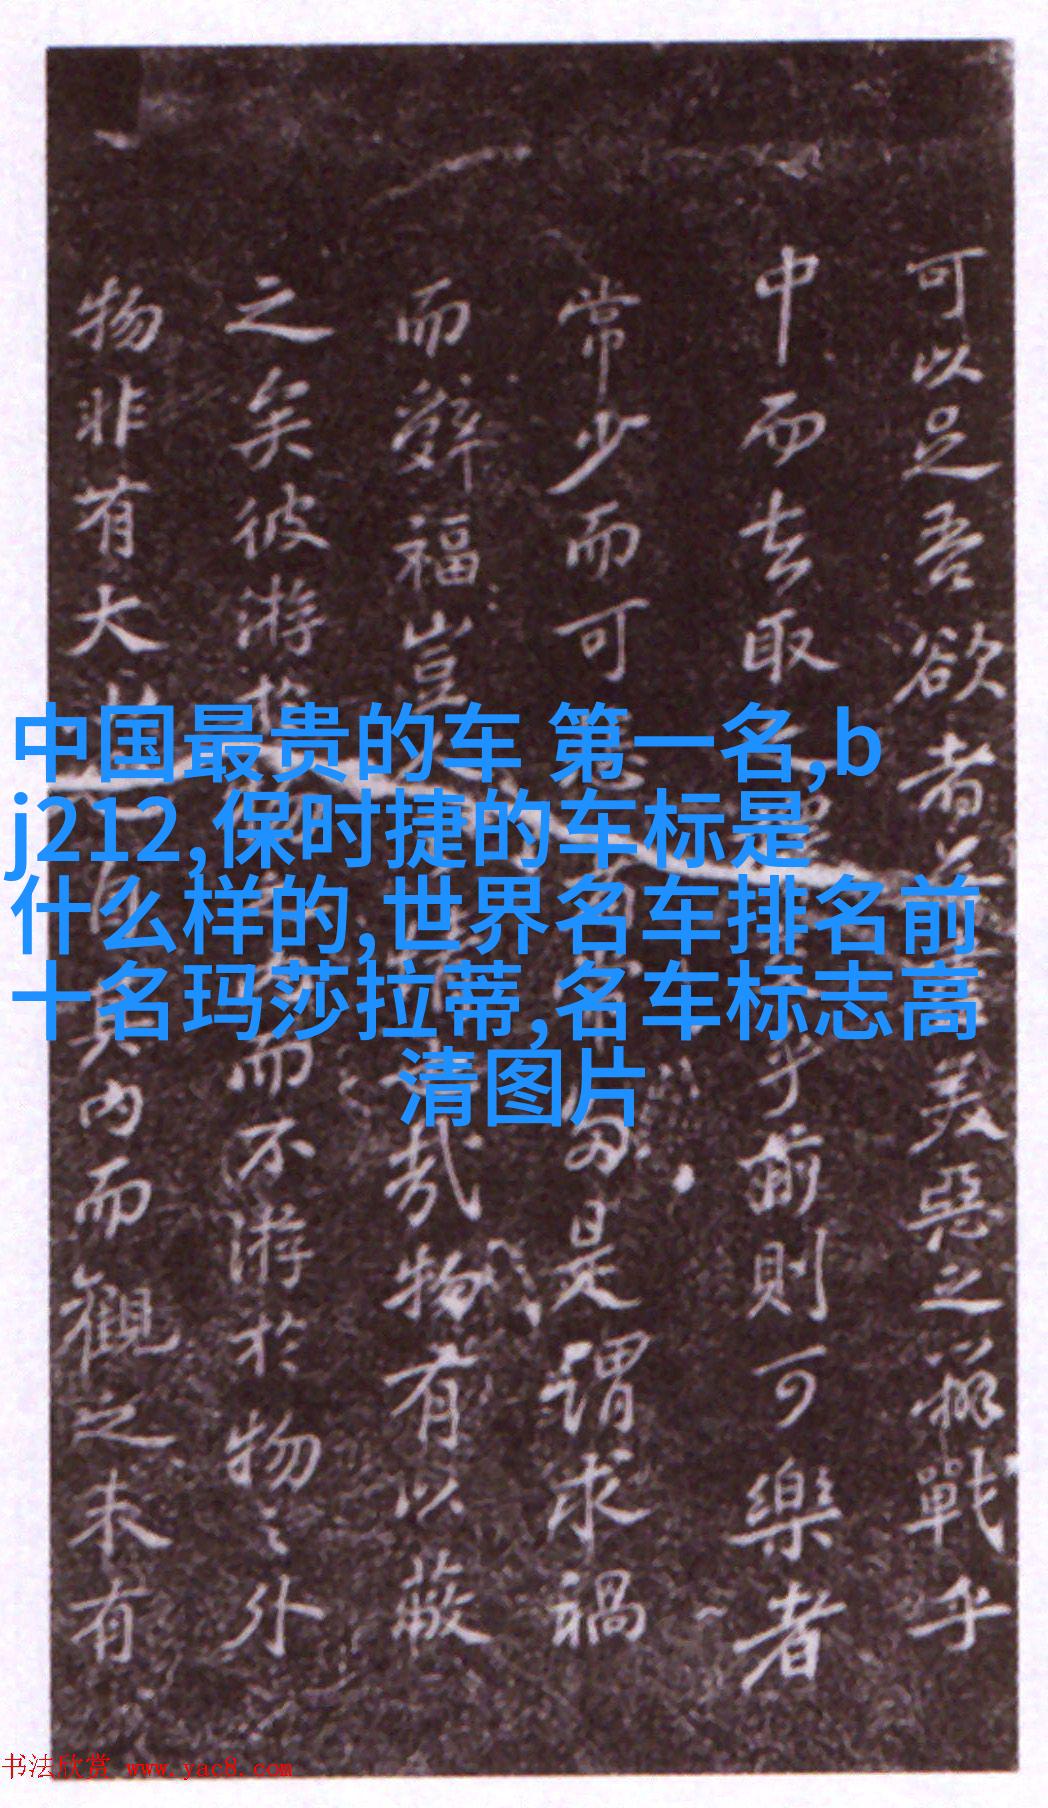 可以足吾欲者美惡之辨戰乎
中而去取乎前則可樂者
常少而可是謂求禍
而辭福豈哉物有以蔽
之矣彼游於而不游於物之外
物非有大其內而觀之未有
中国最贵的车 第一名,b
j212,保时捷的车标是
什么样的,世界名车排名前
十名玛莎拉蒂,名车标志高
清图片
书法欣赏 www.yac8.com